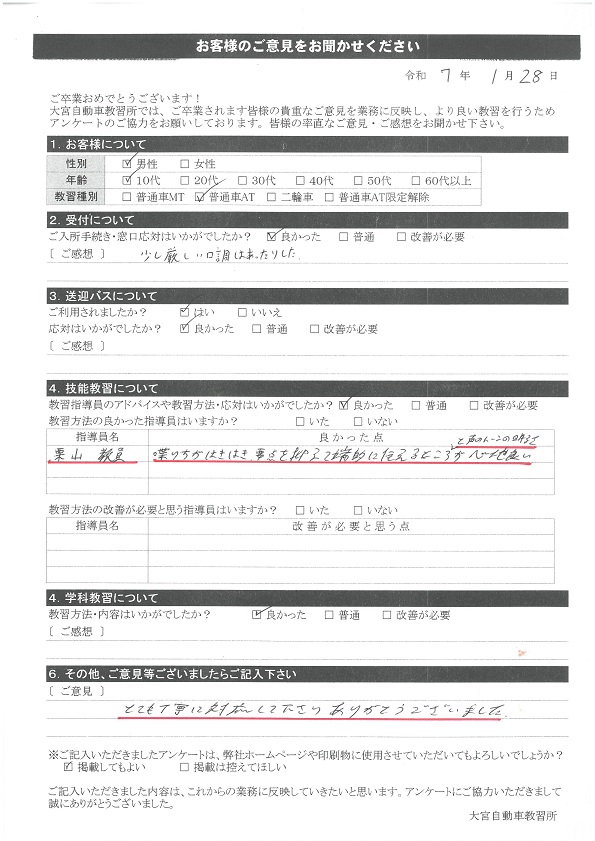 お客様のご意見をお聞かせください
令和 7 年 1 月 28 日
ご卒業おめでとうございます！
大宮自動車教習所では、ご卒業されます皆様の貴重なご意見を業務に反映し、より良い教習を行うため
アンケートのご協力をお願いしております。皆様の率直なご意見・ご感想をお聞かせ下さい。
1. お客様について
性別 ☑ 男性 □ 女性
年齢 ☑ 10代 □ 20代 □ 30代 □ 40代 □ 50代 □ 60代以上
教習種別 □ 普通車MT ☑ 普通車AT □ 二輪車 □ 普通車AT限定解除
2. 受付について
ご入所手続き・窓口応対はいかがでしたか？ ☑ 良かった □ 普通 □ 改善が必要
〔 ご感想 〕 少し厳しい口調はあったりした
3. 送迎バスについて
ご利用されましたか？ ☑ はい □ いいえ
応対はいかがでしたか？ ☑ 良かった □ 普通 □ 改善が必要
〔 ご感想 〕
4. 技能教習について
教習指導員のアドバイスや教習方法・応対はいかがでしたか？ ☑ 良かった □ 普通 □ 改善が必要
教習方法の良かった指導員はいますか？ □ いた □ いない
指導員名 良かった点
と声のトーンの明るさ
栗山 教員 喋り方がはきはき 要点を抑えて端的に伝えるところが 心地良い
教習方法の改善が必要と思う指導員はいますか？ □ いた □ いない
指導員名 改善が必要と思う点
4. 学科教習について
教習方法・内容はいかがでしたか？ ☑ 良かった □ 普通 □ 改善が必要
〔 ご感想 〕
6. その他、ご意見等ございましたらご記入下さい
〔 ご意見 〕
とても丁寧に対応して下さり ありがとうございました
※ご記入いただきましたアンケートは、弊社ホームページや印刷物に使用させていただいてもよろしいでしょうか？
☑ 掲載してもよい □ 掲載は控えてほしい
ご記入いただきました内容は、これからの業務に反映していきたいと思います。アンケートにご協力いただきまして
誠にありがとうございました。
大宮自動車教習所